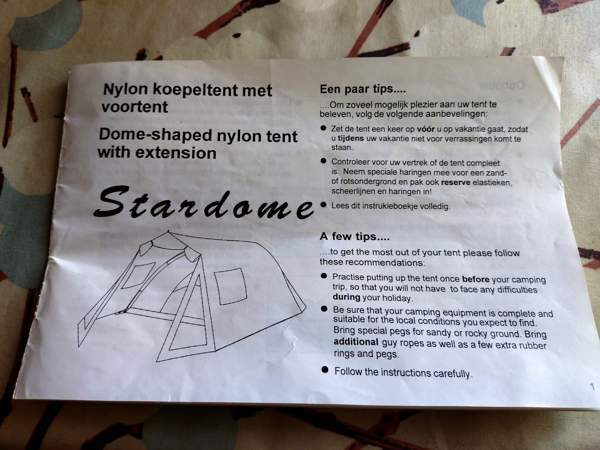 Nylon koepeltent met
voortent
Dome-shaped nylon tent
with extension
Stardome
Een paar tips....
....Om zoveel mogelijk plezier aan uw tent te
beleven, volg de volgende aanbevelingen:
● Zet de tent een keer op vóór u op vakantie gaat, zodat
u tijdens uw vakantie niet voor verrassingen komt te
staan.
● Controleer voor uw vertrek of de tent compleet
is. Neem speciale haringen mee voor een zand-
of rotsondergrond en pak ook reserve elastieken,
scheerlijnen en haringen in!
● Lees dit instrukieboekje volledig.
A few tips....
....to get the most out of your tent please follow
these recommendations:
● Practise putting up the tent once before your camping
trip, so that you will not have to face any difficulties
during your holiday.
● Be sure that your camping equipment is complete and
suitable for the local conditions you expect to find.
Bring special pegs for sandy or rocky ground. Bring
additional guy ropes as well as a few extra rubber
rings and pegs.
● Follow the instructions carefully.
1